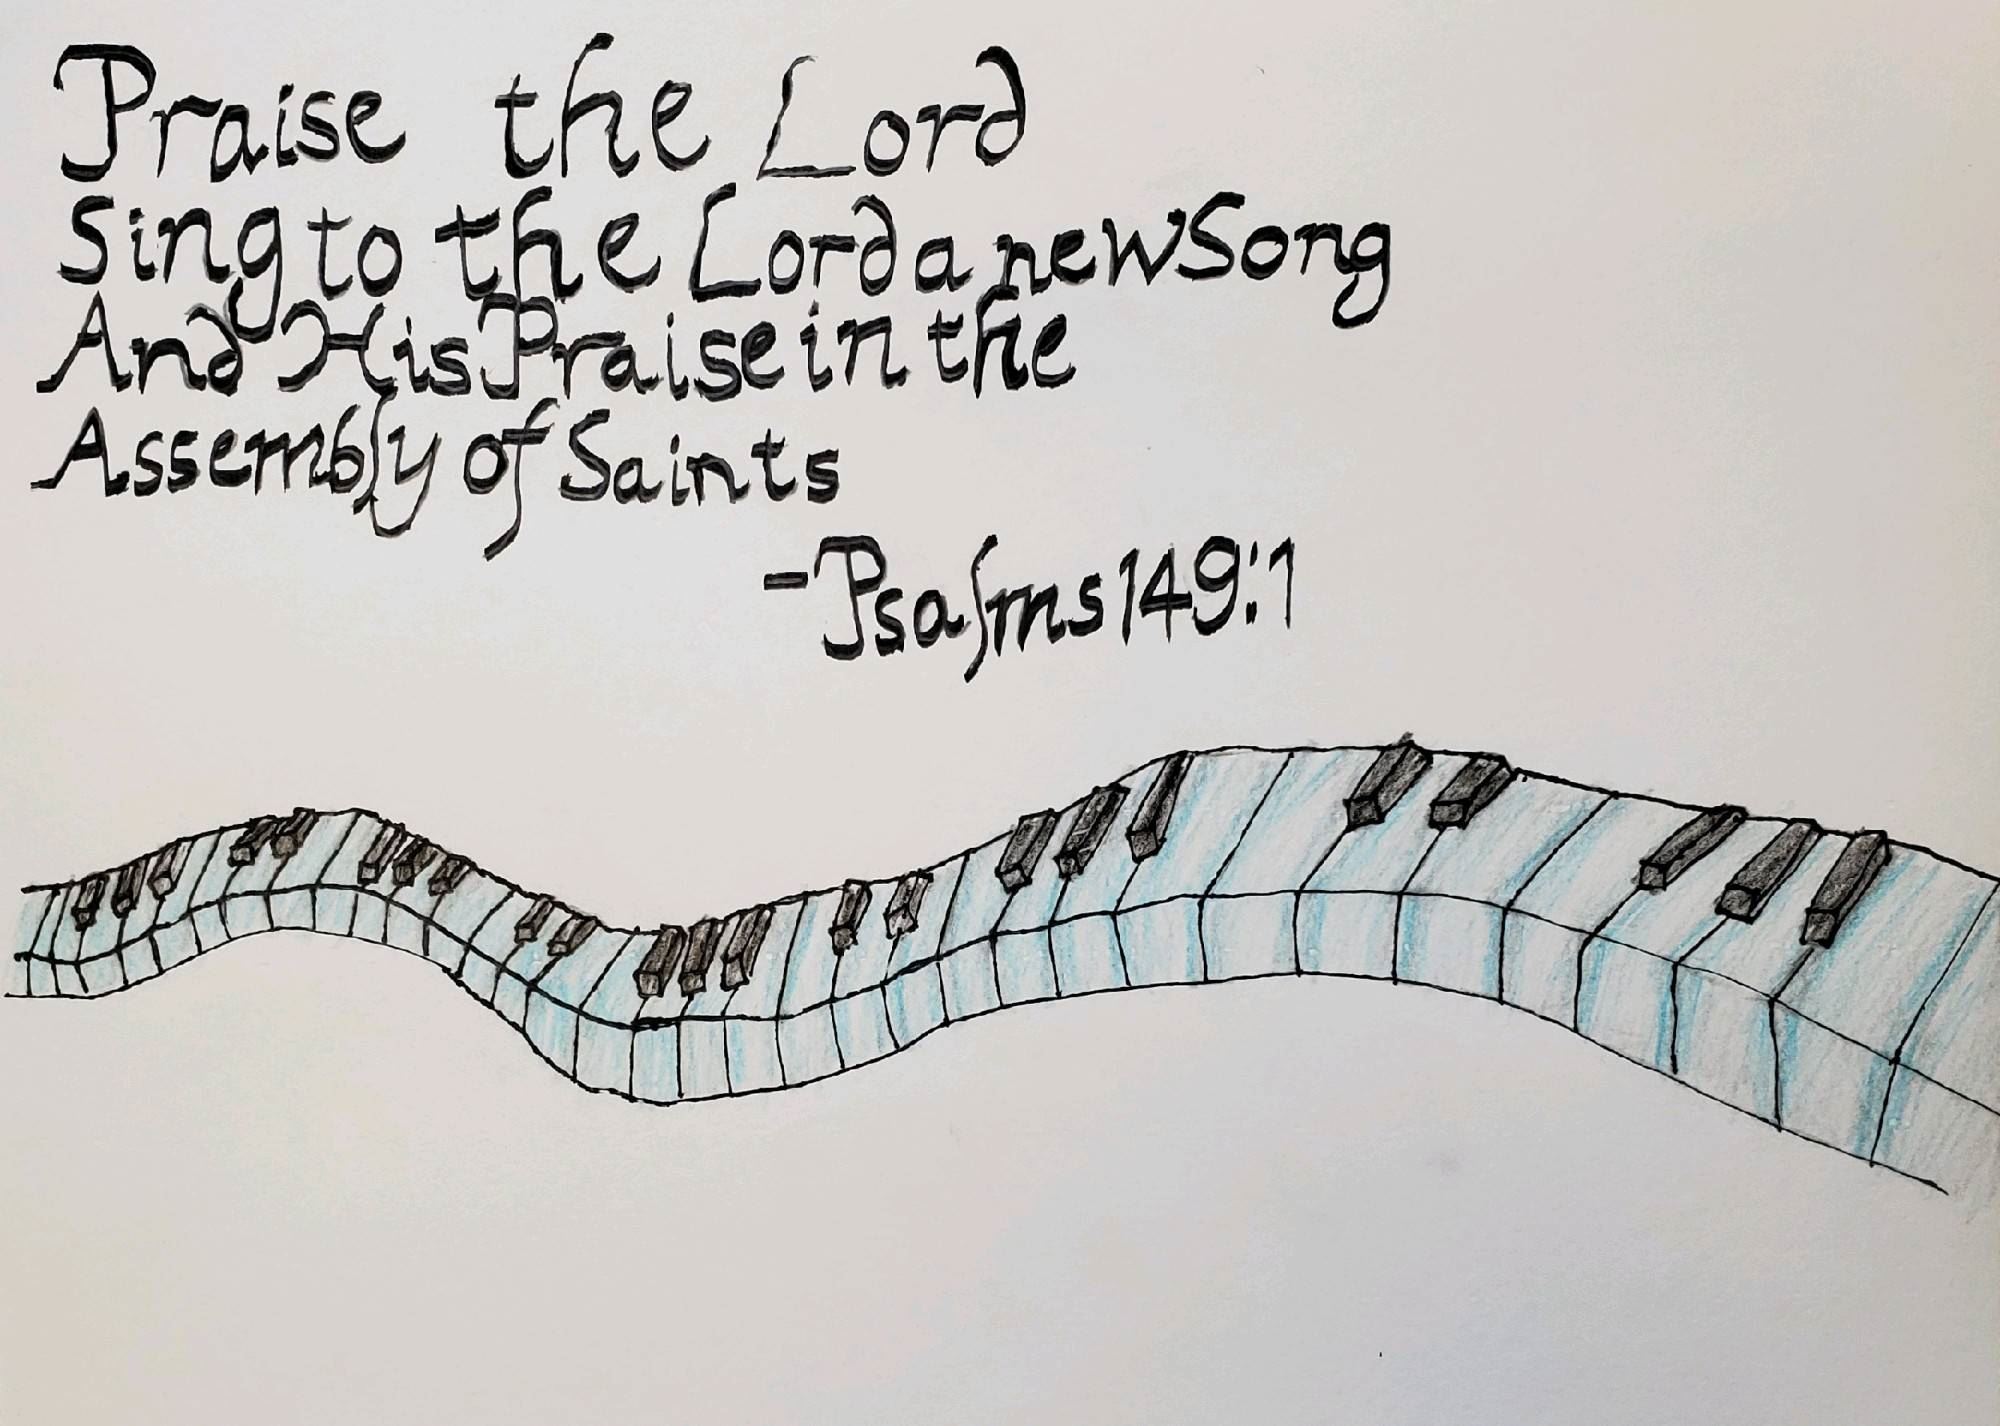 Praise the Lord
Sing to the Lord a new Song
And His Praise in the
Assembly of Saints
-Psalms 149:1